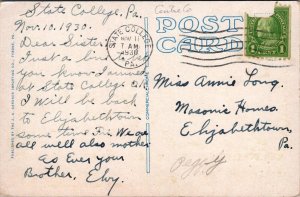 State College, Pa.
Nov. 10. 1930.
Dear Sister:
Just a line to let
you know I am
at State College
I will be back
to Elizabethtown
some time Fri. We are
all well also mother
As Ever your
Brother, Elry.
Centre Co
POST
CARD
STATE COLLEGE
NOV 11
7 AM
1930
PA.
1
Miss Annie Long.
Masonic Homes.
Elizabethtown,
Pa.